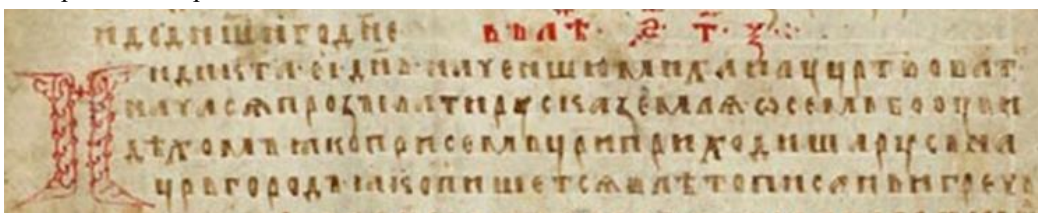 и до дн҃шнѧго дн҃е в лѣт҃ · ҂ѕ҃ · т҃ · ѯ҃ ·
Индикта · еı · дн҃ь · наченшю михаилу ц҃ртвоват
нача сѧ прозывати руска землѧ · ѡ семь бо оуви
дѣхомъ · ꙗко при семь ц҃ри приходиша русь на
ц҃рьгородъ · ꙗко пишетсѧ в лѣтописаньи гречь